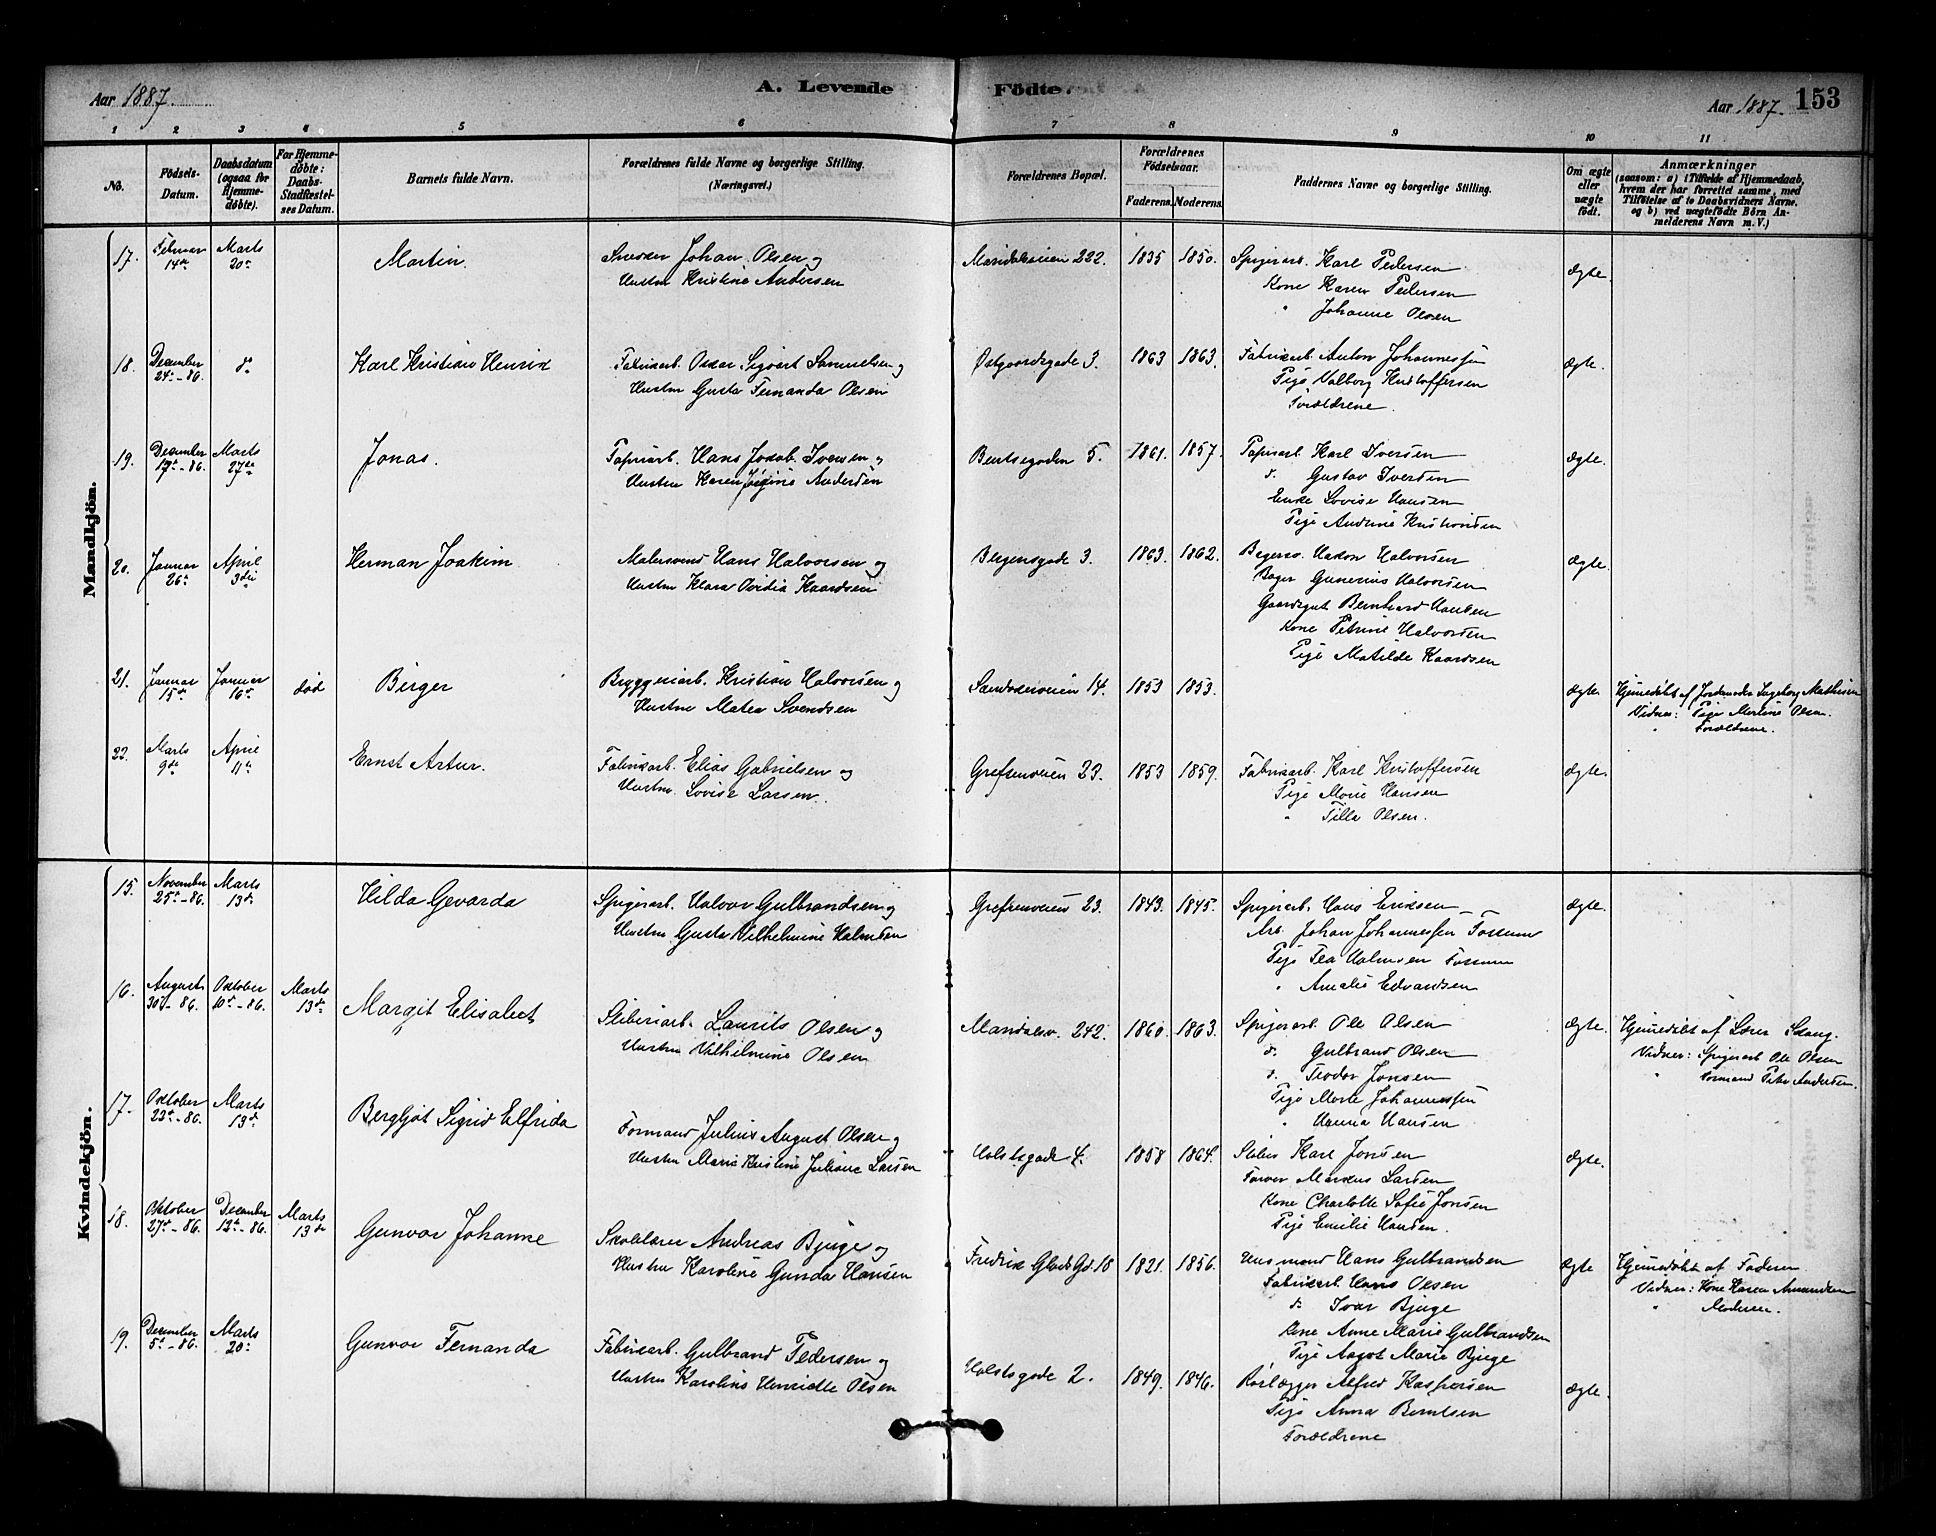 Aar 1887. A. Levende Fødte. Aar 1887. 153
1 2 3 4 5 6 7 8 9 10 11
No. Fødsels-Datum. Daabsdatum (ogsaa for Hjemme-døbte). For Hjemme-døbte: Daabs-Stadfæstel-ses Datum. Barnets fulde Navn. Forældrenes fulde Navne og borgerlige Stilling. (Næringsvei.) Forældrenes Bopæl. Forældrenes Fødselsaar. Faderens. Moderens. Faddernes Navne og borgerlige Stilling. Om ægte eller uægte født. Anmærkninger (saasom: a) i Tilfælde af Hjemmedaab, hvem der har forrettet samme, med Tilføielse af to Daabsvidners Navne. og b) ved uægtefødte Børn An-melderens Navn m. V.)
Mandkjøn.
17. Februar Marts Martin. Snekker Johan Olsen og Maridalsveien 222. 1835 1850. Spigerarb. Karl Pedersen ægte.
14de 20de Hustru Kristine Andersen Kone Karen Pedersen
" Johanne Olsen
18. December do Karl Kristian Henrik Fabrikarb. Oskar Sigvart Samuelsen og Østgaardsgade 3. 1863 1863. Fabrikarb. Anton Johannessen ægte.
24de - 86. Hustru Gusta Fernanda Olsen Pige Valborg Kristoffersen
Forældrene.
19. December Marts Jonas. Papirarb. Hans Jakob Iversen og Bentsegaden 5. 1861. 1857. Papirarb Karl Iversen ægte.
- 86. 27de Hustru Karen Jørgine Andersen d. Gustav Iversen
Enke Lovise Hansen
Pige Andrine Kristiansen
20. Januar April Herman Joakim Malersvend Hans Halvorsen og Bergensgade 3. 1863. 1862. Halvorsen ægte.
26de 3die Hustru Klara Ovidia Kaardsen Bager Gunerius Halvorsen
Gaardsgut Bernhard Hansen
Kone Petrine Halvorsen
Pige Matilde Kaardsen
21. Januar Januar død Birger Bryggeriarb. Kristian Halvorsen og Sandakerveien 14. 1853 1853. ægte Hjemmedøbt af Jordemoder Ingeborg Mathisen
15de 16de Hustru Matea Svendsen Vidner: Pige Martine Olsen.
" Forældrene.
22. Marts April Ernst Artur. Fabrikarb. Elias Gabrielsen og Grefsenveien 23. 1853 1859. Fabrikarb. Karl Kristoffersen ægte.
9de 11te Hustru Lovise Larsen. Pige Marie Hansen
" Tilla Olsen.
Kvindekjøn.
15. November Marts Hilda Gevarda Spigerarb. Halvor Gulbrandsen og Grefsenveien 23. 1843. 1845. Spigerarb. Hans Eriksen ægte.
25de - 86. 13de Hustru Gusta Vilhelmine Halmsen Arb. Johan Johannessen Fossum
Pige Tea Fossum
" Amalie Edvardsen
16. August Oktober Marts Margit Elisabet Sliberiarb. Laurits Olsen og Maridalsv. 242. 1860. 1863. Spigerarb. Ole Olsen ægte. Hjemmedøbt af Lærer Skaug.
30te - 86. 10de - 86. 13de Hustru Vilhelmine Olsen d. Gulbrand Olsen Vidner: Spigerarb Ole Olsen
d. Teodor Jonsen " Formand Peter Andersen.
Pige Marte Johannessen
" Hanna Hansen
17. Oktober Marts Bergljot Sigrid Elfrida Formand Julius August Olsen og Holstsgade 4. 1858 1864. Sliber Karl Jonsen ægte.
- 86. 13de Hustru Marie Kristine Juliane Larsen Farver Markus Larsen
Kone Charlotte Sofie Jonsen
Pige Emilie Hansen.
18. Oktober December Marts Gunvor Johanne Skolelærer Andreas Bjuge og Fredrik Glads Gd. 18 1821. 1856. Husmand Hans Gulbrandsen ægte Hjemmedøbt af Faderen
27de - 86. 12te - 86. 13de Hustru Karoline Gunda Hansen Fabrikarb. Hans Olsen Vidner: Kone Karen Amundsen
d. Ivar Bjuge " Moderen.
Kone Anne Marie Gulbrandsen
Pige Aagot Marie Bjuge
19. December Marts Gunvor Fernanda Fabrikarb. Gulbrand Pedersen og Holstsgade 2. 1849. 1846. Rørlægger Alfred Kaspersen ægte.
5te - 86. 20de Hustru Karoline Henriette Olsen Pige Anna Berntsen
Forældrene